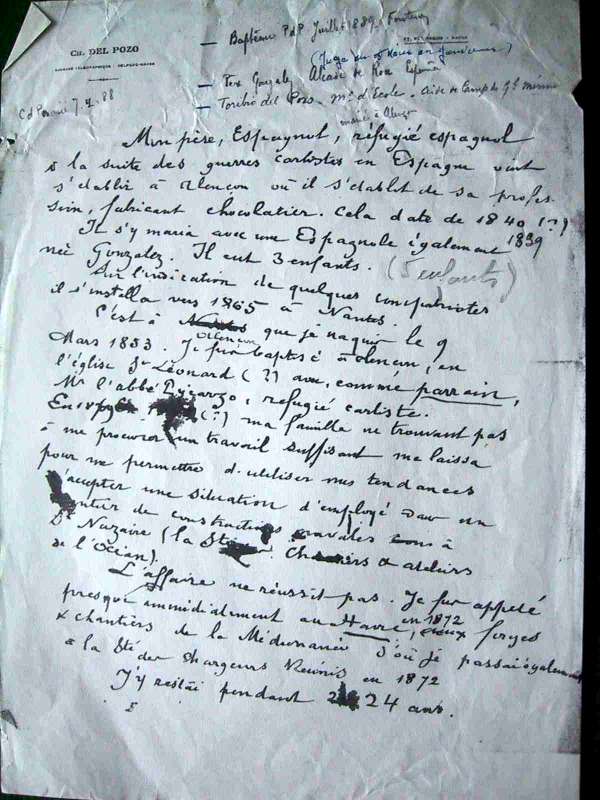 CH. DEL POZO
— Baptême PdP Juillet 1889
— Pex Gonzalez Alcade de España
— Toribio del Pozo - Mr d'Ecole - Aide de Camp du Gl
7 88
Mon père, Espagnol, réfugié espagnol
à la suite des guerres carlistes en Espagne vint
s'établir à Alençon où il s'établit de sa profes-
sion, fabricant chocolatier. Cela date de 1840 (?)
1839
Il s'y maria avec une Espagnole également
née Gonzalez. Il eut 3 enfants. (5 enfants)
Sur l'indication de quelques compatriotes
il s'installa vers 1865 à Nantes.
C'est à Alençon que je naquis le 9
Mars 1853. Je fus baptisé à Alençon, en
l'église St Léonard (?) avec, comme parrain,
Mr l'abbé, réfugié carliste.
En (?) ma famille ne trouvant pas
à me procurer un travail suffisant me laissa
pour me permettre d'utiliser mes tendances
accepter une situation d'employé dans un
de constructions navales à
St Nazaire (la Sté Chantiers & ateliers
de l'Océan).
L'affaire ne réussit pas. Je fus appelé
presque immédiatement au Havre, en 1872 forges
& chantiers de la Méditerranée d'où je passai également
à la Sté des Chargeurs Réunis en 1872
J'y restai pendant 24 ans.